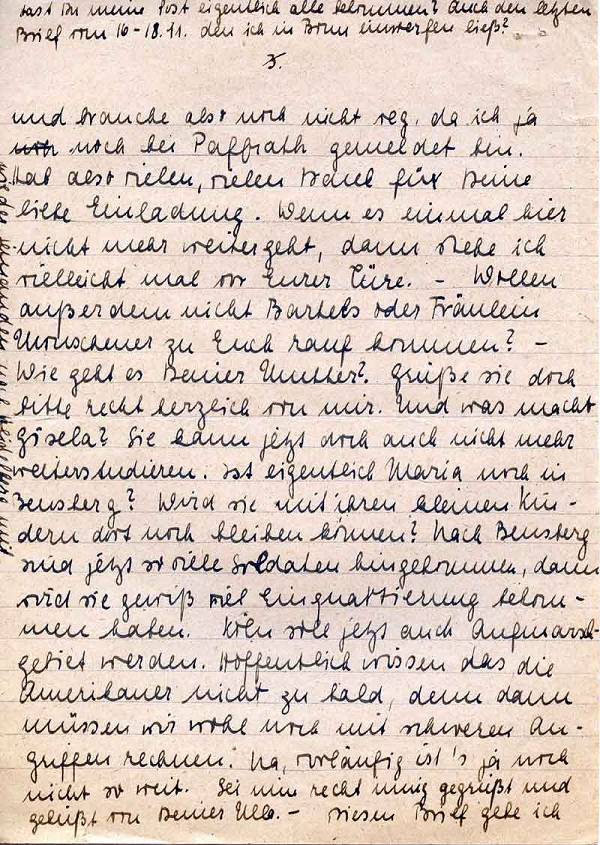 hast Du meine Post eigentlich alle bekommen? Auch den letzten
Brief vom 16-18.11. den ich in Bonn einwerfen ließ?
5.
und brauche also noch nicht reg. da ich ja
noch bei Paffrath gemeldet bin.
Hab also vielen, vielen Dank für Deine
liebe Einladung. Wenn es einmal hier
nicht mehr weitergeht, dann stehe ich
vielleicht mal vor Eurer Türe. - Wollen
außerdem nicht Bartels oder Fräulein
zu Euch rauf kommen? -
Wie geht es Deiner Mutter? Grüße sie doch
bitte recht herzlich von mir. Und was macht
Gisela? Sie kann jetzt doch auch nicht mehr
weiterstudieren. Ist eigentlich Maria noch in
Bensberg? Wird sie mit ihren kleinen Kin-
dern dort noch bleiben können? Nach Bensberg
sind jetzt so viele Soldaten hingekommen, dann
wird sie gewiß viel Einquartierung bekom-
men haben. Köln soll jetzt auch Aufmarsch-
gebiet werden. Hoffentlich wissen das die
Amerikaner nicht zu bald, denn dann
müssen wir wohl noch mit schweren An-
griffen rechnen. Na, vorläufig ist's ja noch
nicht so weit. Sei nun recht innig gegrüßt und
geküßt von Deiner Ulla. - Diesen Brief gebe ich